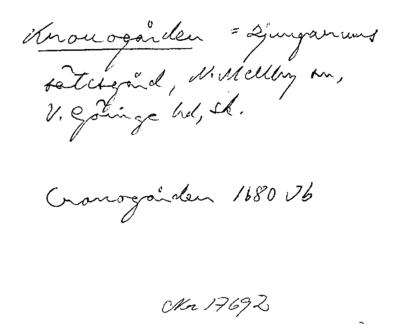 Kronogården = Ljungarums
sätesgård, N. Mellby sn,
V. Göinge hd, Sk.
Cronogården 1680 Jb
Nr 17692